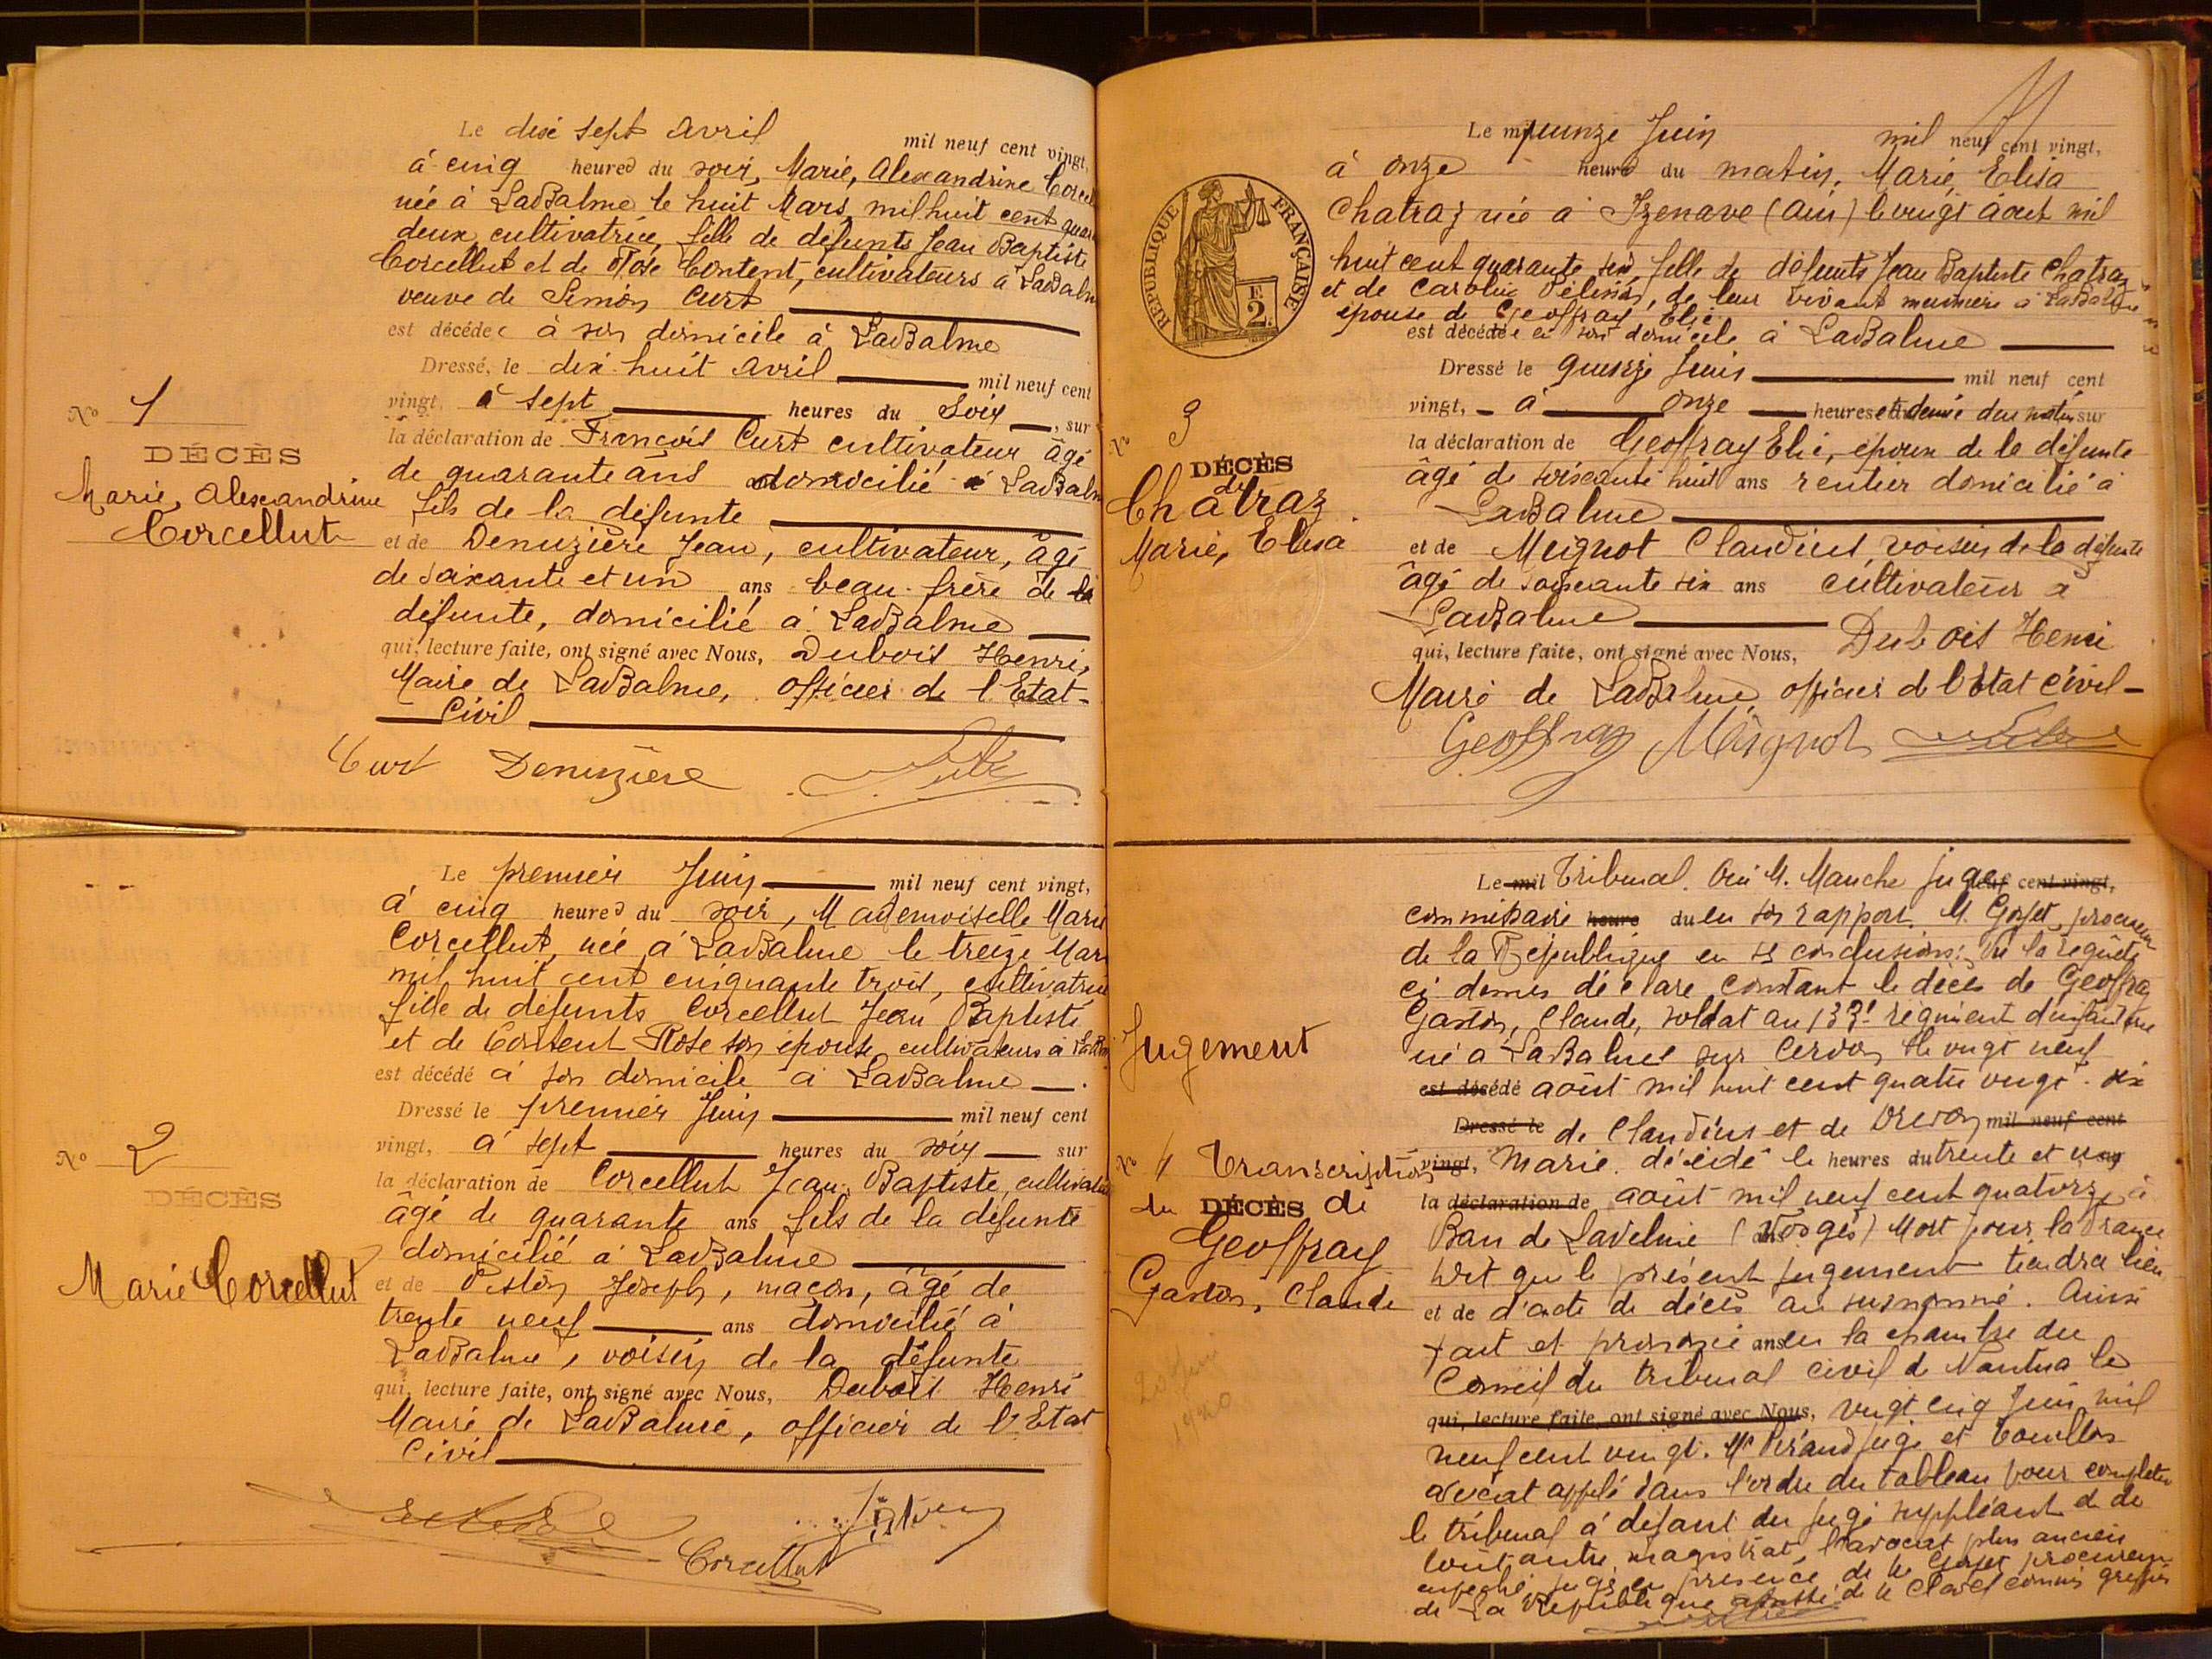 Le dix sept Avril mil neuf cent vingt,
à cinq heures du soir, Marie, Alexandrine Corcel
née à LaBalme le huit Mars mil huit cent quara
deux, cultivatrice, fille de défunts Jean Baptiste
Corcellut et de Rose Content, cultivateurs à LaBalm
veuve de Simon Curt
est décédée à son domicile à LaBalme
Dressé, le dix-huit Avril mil neuf cent
vingt, à sept heures du Soir, sur
la déclaration de François Curt cultivateur âgé
de quarante ans domicilié à LaBalm
fils de la défunte
et de Denuzière Jean, cultivateur, âgé
de soixante et un ans beau-frère de la
défunte, domicilié à LaBalme
qui, lecture faite, ont signé avec Nous, Dubois Henri,
Maire de LaBalme, officier de l'Etat-
Civil
Curt Denuzière
No 1
DÉCÈS
Marie, Alexandrine
Corcellut
Le premier Juin mil neuf cent vingt,
à cinq heures du soir, Mademoiselle Marie
Corcellut, née à LaBalme le treize Mars
mil huit cent cinquante trois, cultivatrice
fille de défunts Corcellut Jean Baptiste
et de Content Rose son épouse cultivateurs à
est décédé à son domicile à LaBalme
Dressé le premier Juin mil neuf cent
vingt, à sept heures du soir sur
la déclaration de Corcellut Jean, Baptiste, cultivateur
âgé de quarante ans fils de la défunte
domicilié à LaBalme
et de Joseph, maçon, âgé de
trente neuf ans domicilié à
LaBalme, voisin de la défunte
qui, lecture faite, ont signé avec Nous, Dubois Henri
Maire de LaBalme, officier de l'Etat
Civil
Corcellut
No 2
DÉCÈS
Marie Corcellut
Le mil quinze Juin mil neuf cent vingt,
à onze heures du matin, Marie, Elisa
Chatraz née à Izenave (Ain) le vingt août mil
huit cent quarante six, fille de défunts Jean Baptiste Chatraz
et de Caroline Pélisson, de leur vivant meuniers à LaBalme
épouse de Geoffray Elie
est décédée en son domicile à LaBalme
Dressé le quinze Juin mil neuf cent
vingt, à onze heures et demie du matin sur
la déclaration de Geoffray Elie, époux de la défunte
âgé de soixante huit ans rentier domicilié à
LaBalme
et de Meignot Claudius, voisin de la défunte
âgé de soixante six ans cultivateur à
LaBalme
qui, lecture faite, ont signé avec Nous, Dubois Henri
Maire de LaBalme, officier de l'Etat Civil
Geoffray Meignot
RÉPUBLIQUE FRANÇAISE
2
No 3
DÉCÈS
de
Chatraz
Marie, Elisa
Le mil Tribunal. Ouï M. Manche juge neuf cent vingt,
commissaire heure du en son rapport. M. Gojet, procureur
de la République en ses conclusions; Vu la requête
ci-dessus déclare constant le décès de Geoffray
Gaston, Claude, soldat au 133e régiment d'infanterie
né à LaBalme sur Cerdon le vingt neuf
est décédé août mil huit cent quatre vingt dix
Dressé le de Claudius et de mil neuf cent
vingt, Marie. décédé le heures du trente et un
la déclaration de août mil neuf cent quatorze à
Ban de Laveline (Vosges) Mort pour la France
Dit que le présent jugement tiendra lieu
et de d'acte de décès au susnommé. Ainsi
fait et prononcé ans en la chambre du
Conseil du tribunal civil de Nantua le
qui, lecture faite, ont signé avec Nous, vingt cinq Juin mil
neuf cent vingt. Mr juge et
avocat appelé dans l'ordre du tableau pour compléter
le tribunal à défaut du juge suppléant et de
tout autre magistrat, l'avocat plus ancien
empêché, juge en présence de M. Gojet procureur
de La République de M. Clavel commis greffier
Jugement
No 4 Transcription
du DÉCÈS de
Geoffray
Gaston, Claude
1920